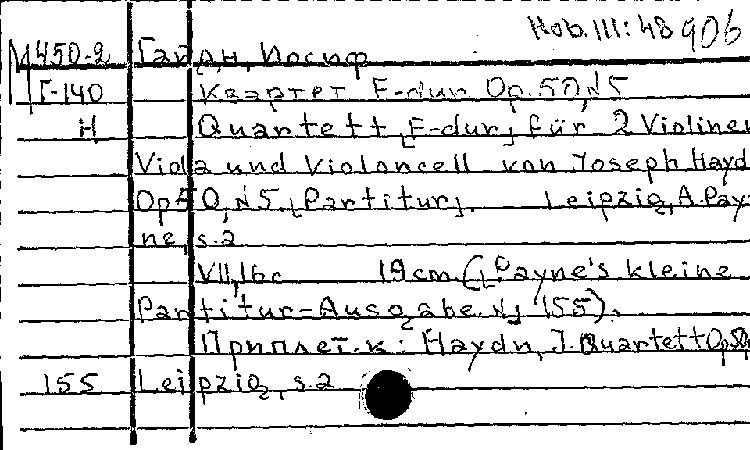 Hob. III: 48 906
М450-2 Гайдн, Иосиф
Г-140 Квартет F-dur Op. 50, №5
Н Quartett [F-dur] für 2 Violinen
Viola und Violoncell von Joseph Hayd
Op 50, №5. [Partitur]. Leipzig, A. Pay-
ne, s. a.
VII, 16 с 19 cm. ([Payne's kleine
Partitur-Ausgabe. № 155).
Приплет. к: Haydn, J. Quartett Op. 50
155 Leipzig, s. a.